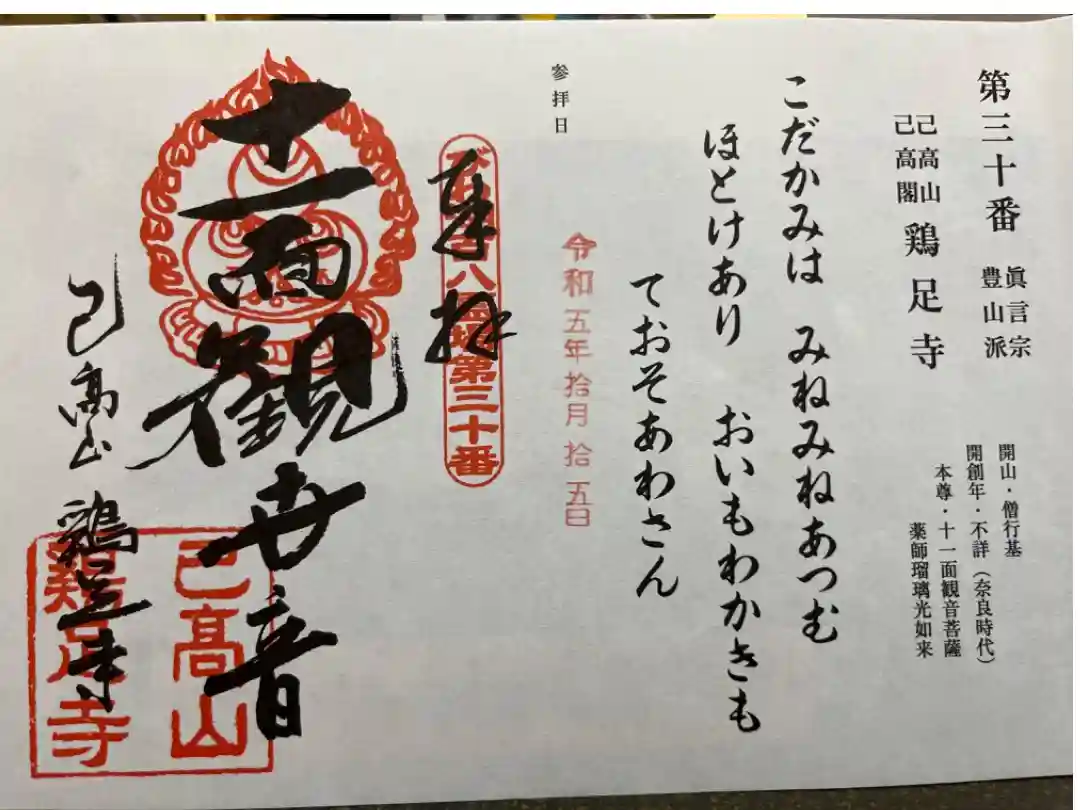 第三十番
眞言宗
豊山派
己高山
己高閣
鶏足寺
開山・僧行基
開創年・不詳（奈良時代）
本尊・十一面観音菩薩
薬師瑠璃光如来
こだかみは　みねみねあつむ
ほとけあり　おいもわかきも
ておそあわさん
参拝日
令和五年拾月拾五日
奉拝
八霊場第三十番
十一面観世音
己高山　鶏足寺
己高山
鶏足寺